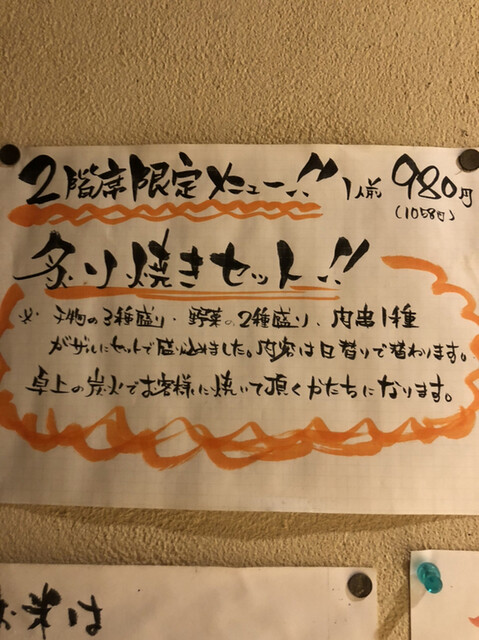 2階席限定メニュー!! 1人前 980円
(1058円)
炙り焼きセット!!
※ 干物の3種盛り・野菜の2種盛り、肉串1種
がザルにセットで盛り込めました。内容は日替りで替わります。
卓上の炭火でお客様に焼いて頂くかたちになります。
お米は